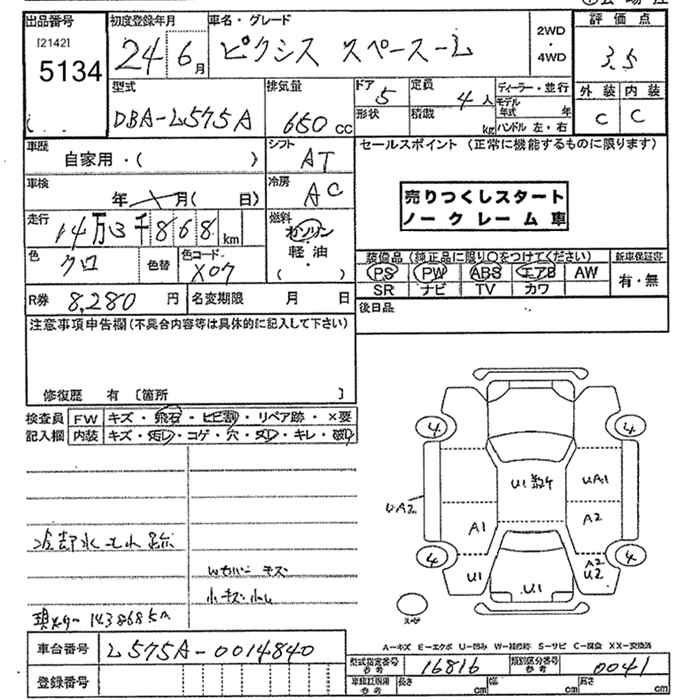 出品番号 初度登録年月 車名・グレード 2WD・4WD 評価点
[2142] 5134 24 6月 ピクシス スペース-L 3.5
型式 排気量 ドア 5 定員 4人 ディーラー・並行 外装 内装
DBA-L575A 650cc 形状 積載 kg モデル年式 年 ハンドル 左・右 C C
車歴 自家用・( ) シフト AT セールスポイント (正常に機能するものに限ります)
車検 年 月( 日) 冷房 AC
売りつくしスタート
ノークレーム車
走行 14万3千868km 燃料 ガソリン・軽油・( )
色 クロ 色替 色コード X07
装備品 (純正品に限り○をつけてください) 新車保証書
PS PW ABS エアB AW 有・無
SR ナビ TV カワ
R券 8,280円 名変期限 月 日 後日品
注意事項申告欄(不具合内容等は具体的に記入して下さい)
修復歴 有 [箇所 ]
検査員 FW キズ・飛石・ヒビ割・リペア跡・×要
記入欄 内装 キズ・汚レ・コゲ・穴・スレ・キレ・破レ
4 4
U1 数ケ UA1
UA2 A1 A2
4 4
U1 U1 A2 U2
冷却水モレ跡
Wカバー キズ
小キズ小凹
現メーター 143868km
スペア
A-キズ E-エクボ U-凹み W-補修跡 S-サビ C-腐食 XX-交換済
車台番号 L575A-0014840
型式指定番号 参考 16816 類別区分番号 参考 0041
登録番号 車輌証明書 参考 長さ cm 幅 cm 高さ cm